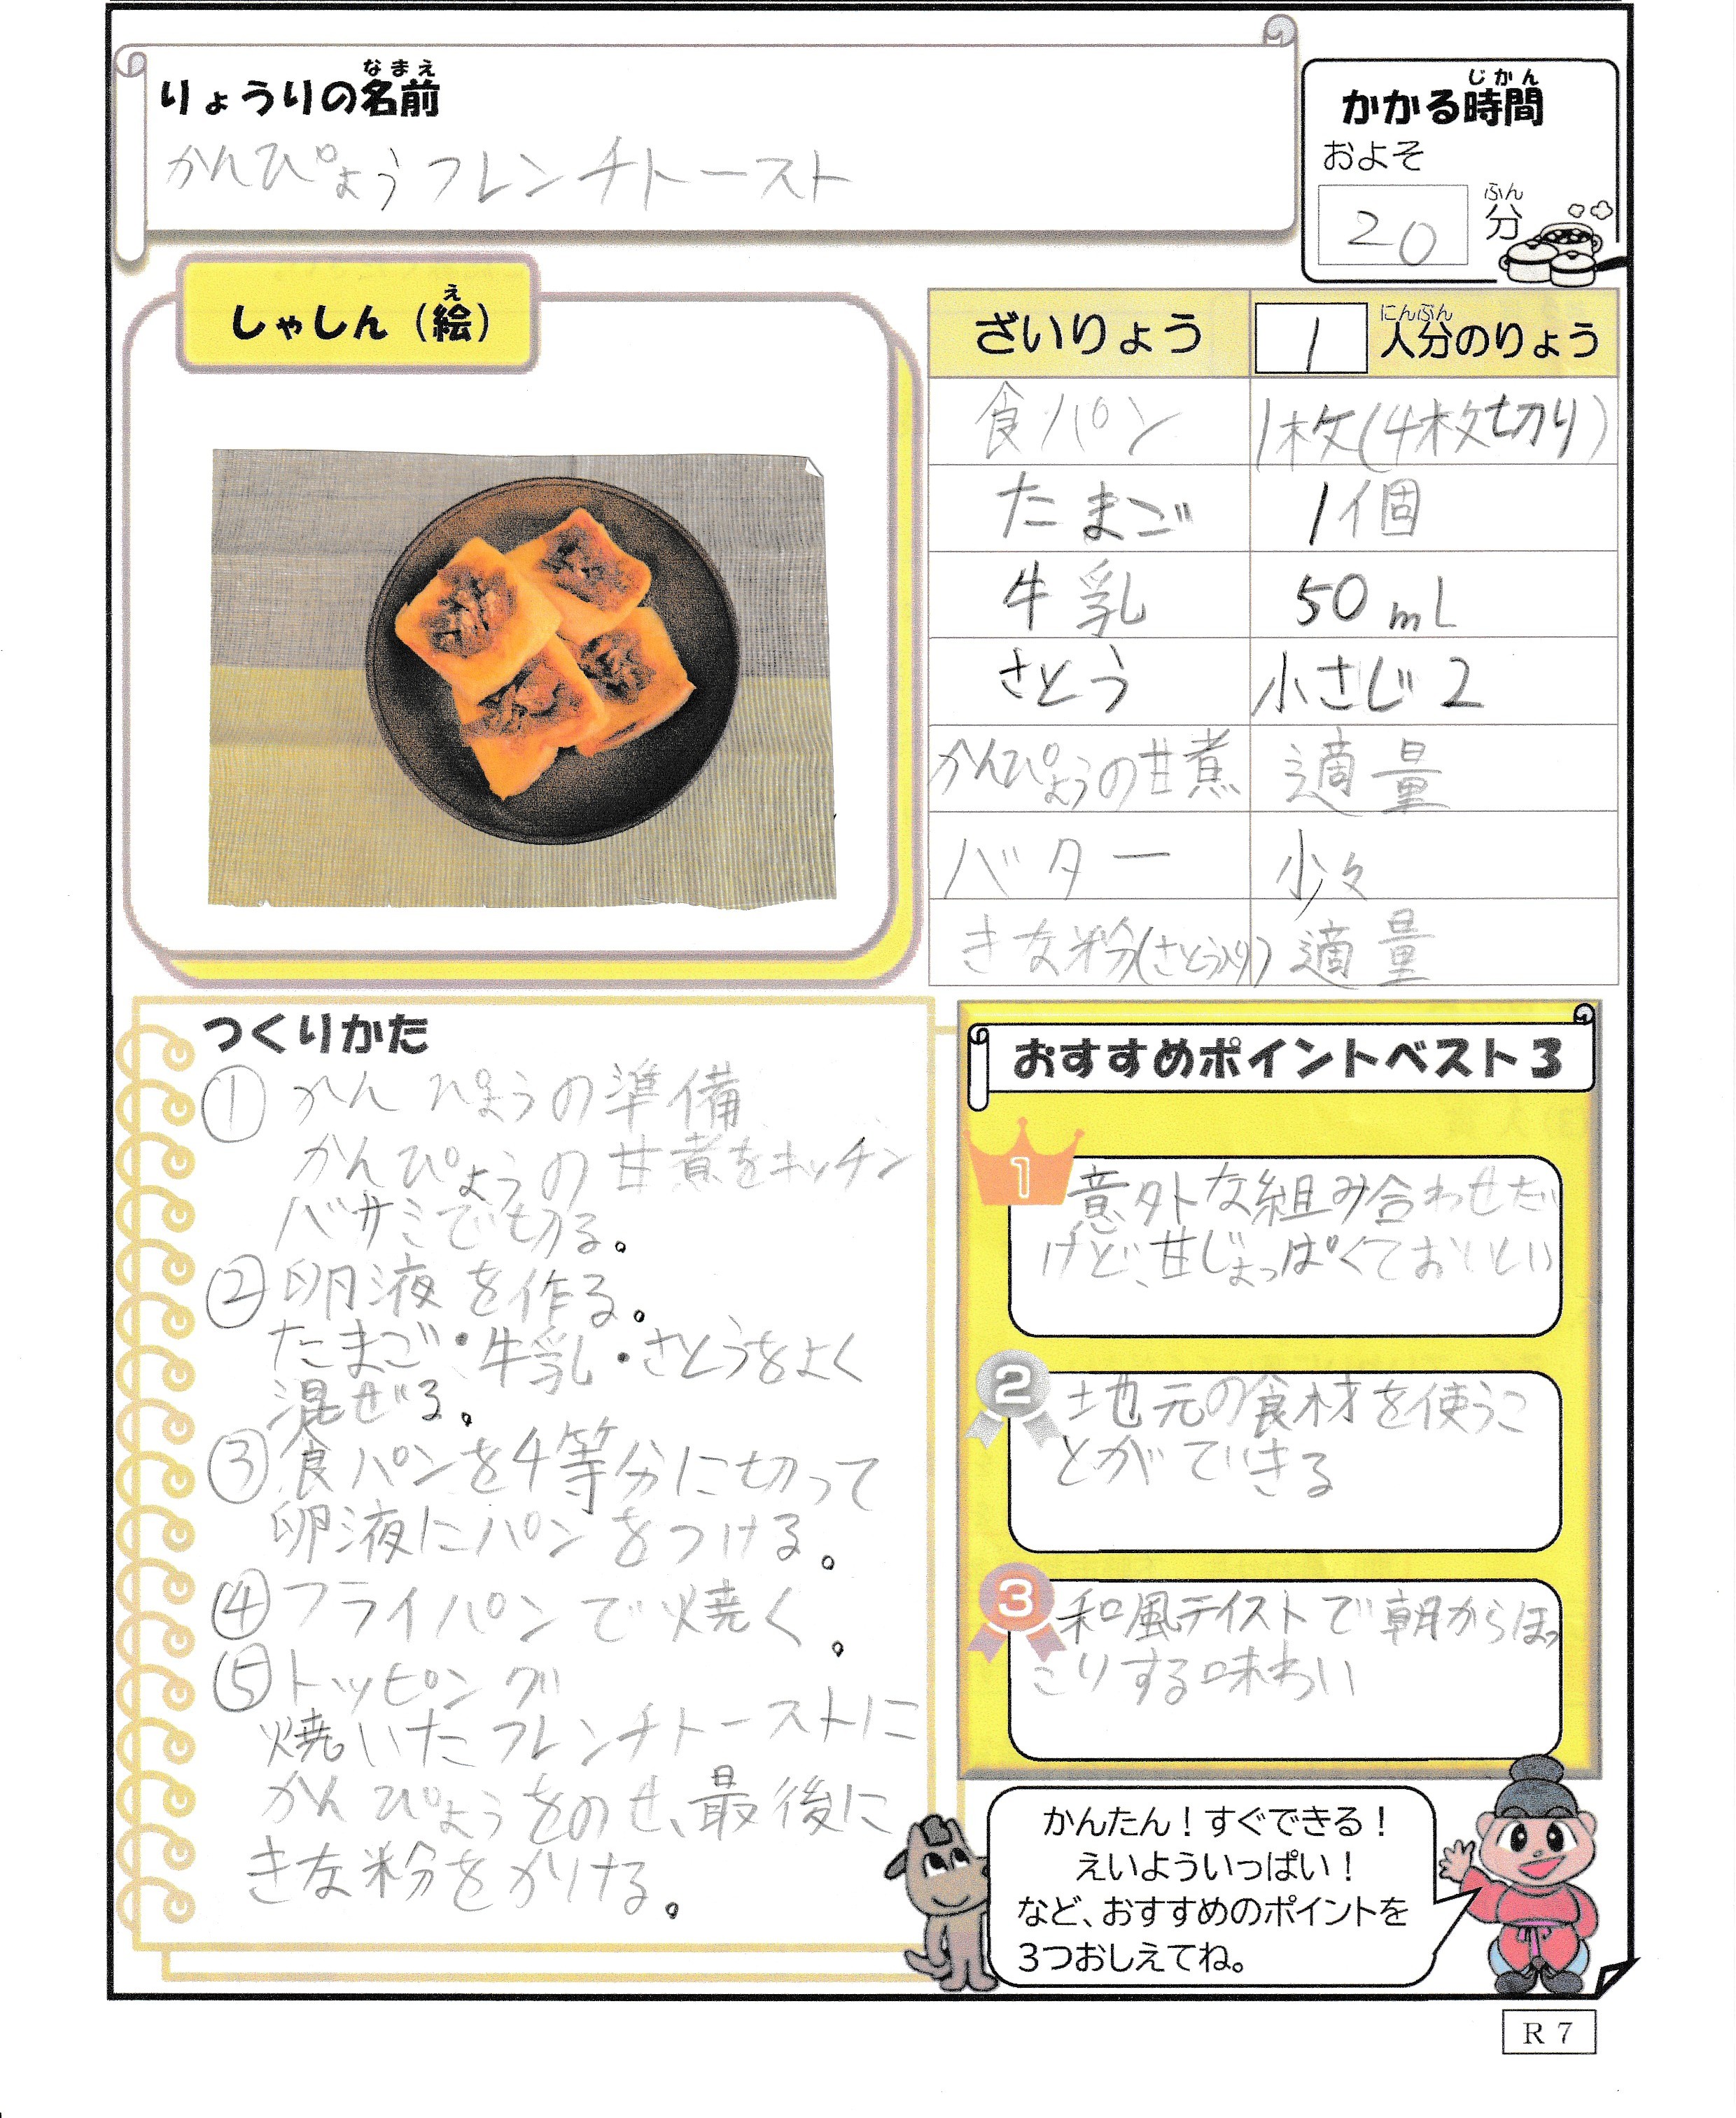 りょうりの名前
なまえ
かんぴょうフレンチトースト
かかる時間
じかん
およそ
20
分
ふん
しゃしん（絵）
え
ざいりょう
1 人分のりょう
にんぶん
食パン 1枚(4枚切り)
たまご 1個
牛乳 50mL
さとう 小さじ2
かんぴょうの甘煮 適量
バター 少々
きな粉(さとう入り) 適量
つくりかた
① かんぴょうの準備
かんぴょうの甘煮をキッチン
バサミで切る。
② 卵液を作る。
たまご・牛乳・さとうをよく
混ぜる。
③ 食パンを4等分に切って
卵液にパンをつける。
④ フライパンで焼く。
⑤ トッピング
焼いたフレンチトーストに
かんぴょうをのせ、最後に
きな粉をかける。
おすすめポイントベスト３
1
意外な組み合わせだ
けど、甘じょっぱくておいしい
2
地元の食材を使うこ
とができる
3
和風テイストで朝からほっ
こりする味わい
かんたん！すぐできる！
えいよういっぱい！
など、おすすめのポイントを
３つおしえてね。
R 7